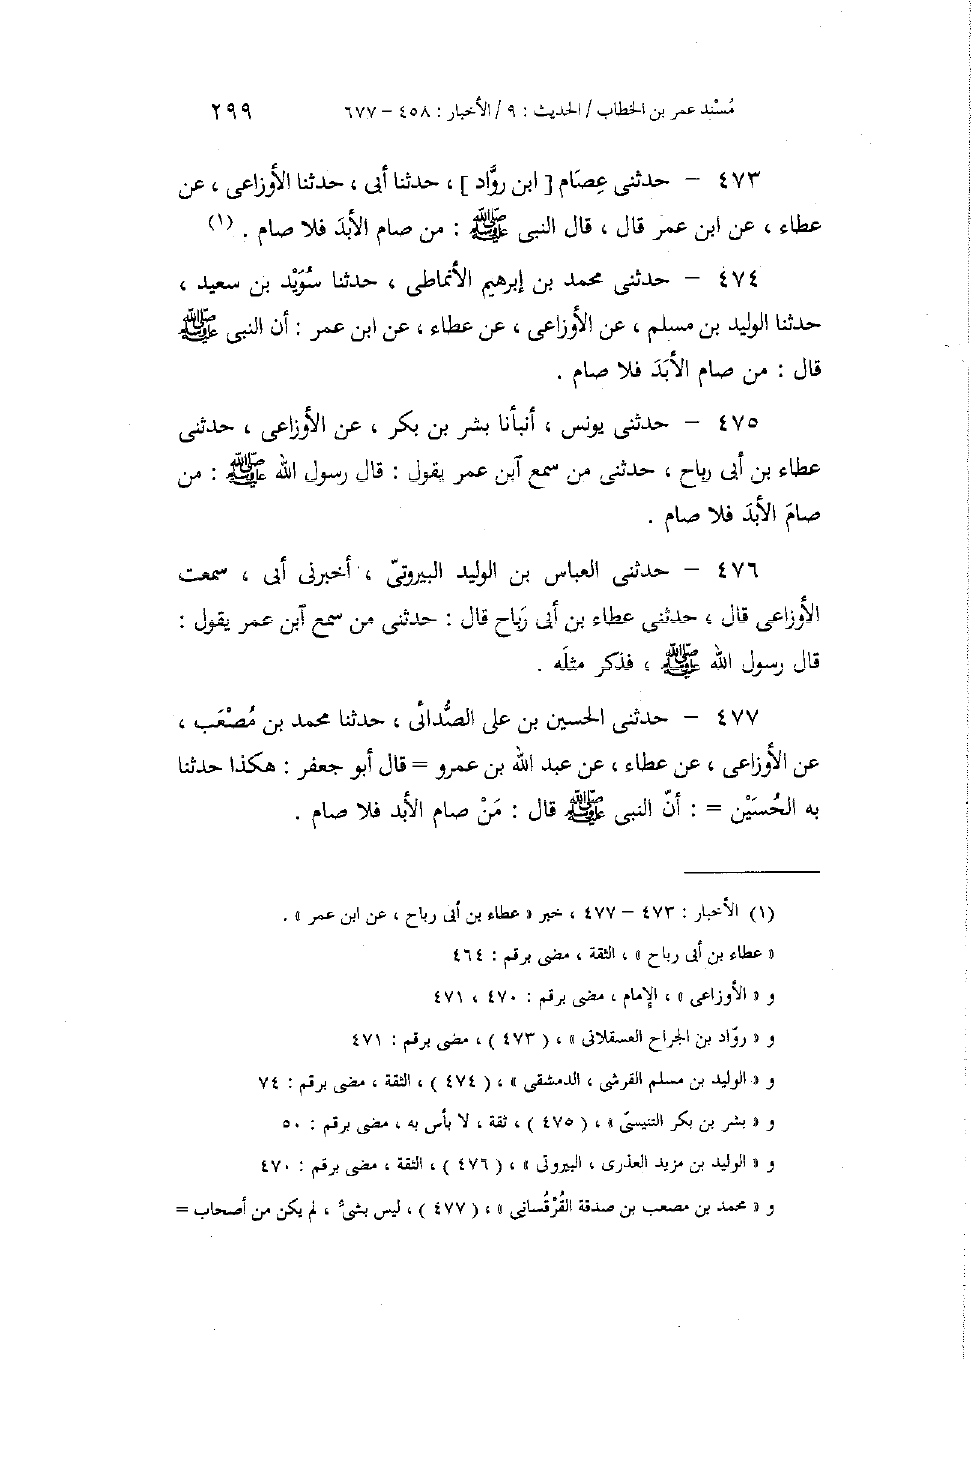 مُسْند عمر بن الخطاب / الحديث : ٩ / الأخبار : ٤٥٨ – ٦٧٧ ٢٩٩
٤٧٣ – حدثنى عِصَام [ ابن روَّاد ] ، حدثنا أبى ، حدثنا الأوزاعى ، عن
عطاء ، عن ابن عمر قال ، قال النبى ﷺ : من صام الأبدَ فلا صام . (١)
٤٧٤ – حدثنى محمد بن إبرهيم الأنماطى ، حدثنا سُوَيْد بن سعيد ،
حدثنا الوليد بن مسلم ، عن الأوزاعى ، عن عطاء ، عن ابن عمر : أن النبى ﷺ
قال : من صام الأبَدَ فلا صام .
٤٧٥ – حدثنى يونس ، أنبأنا بشر بن بكر ، عن الأوزاعى ، حدثنى
عطاء بن أبى رباح ، حدثنى من سمع آبن عمر يقول : قال رسول الله ﷺ : من
صامَ الأبدَ فلا صام .
٤٧٦ – حدثنى العباس بن الوليد البيروتىّ ، أخبرنى أبى ، سمعت
الأوزاعى قال ، حدثنى عطاء بن أبى رَباح قال : حدثنى من سمع آبن عمر يقول :
قال رسول الله ﷺ ، فذكر مثلَه .
٤٧٧ – حدثنى الحسين بن على الصُّدائى ، حدثنا محمد بن مُصْعَب ،
عن الأوزاعى ، عن عطاء ، عن عبد الله بن عمرو = قال أبو جعفر : هكذا حدثنا
به الحُسَيْن = : أنّ النبى ﷺ قال : مَنْ صام الأبد فلا صام .
(١) الأخبار : ٤٧٣ – ٤٧٧ ، خبر « عطاء بن أبى رباح ، عن ابن عمر » .
« عطاء بن أبى رباح » ، الثقة ، مضى برقم : ٤٦٤
و « الأوزاعى » ، الإمام ، مضى برقم : ٤٧٠ ، ٤٧١
و « روّاد بن الجراح العسقلانى » ، ( ٤٧٣ ) ، مضى برقم : ٤٧١
و « الوليد بن مسلم القرشى ، الدمشقى » ، ( ٤٧٤ ) ، الثقة ، مضى برقم : ٧٤
و « بشر بن بكر التنيسىّ » ، ( ٤٧٥ ) ، ثقة ، لا بأس به ، مضى برقم : ٥٠
و « الوليد بن مزيد العذرى ، البيروتى » ، ( ٤٧٦ ) ، الثقة ، مضى برقم : ٤٧٠
و « محمد بن مصعب بن صدقة القُرْقُسانِي » ، ( ٤٧٧ ) ، ليس بشىء ، لم يكن من أصحاب =